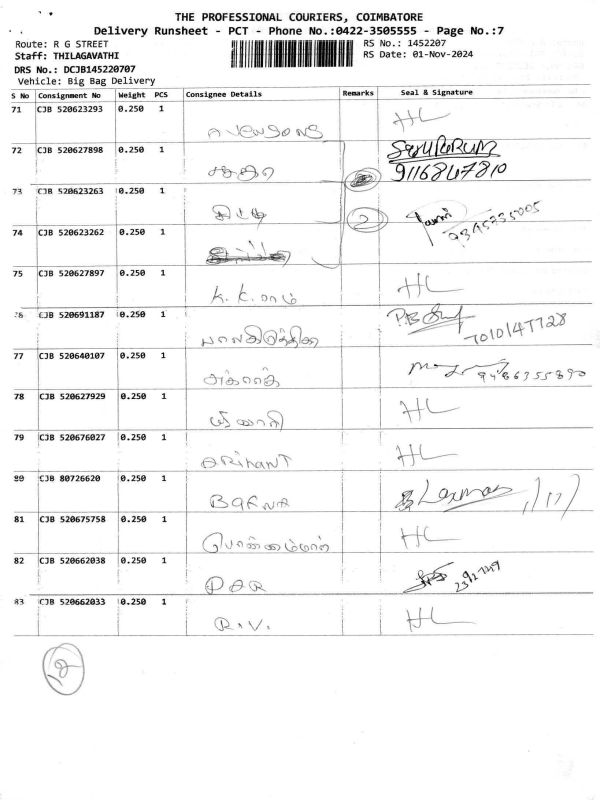 THE PROFESSIONAL COURIERS, COIMBATORE
Delivery Runsheet - PCT - Phone No.:0422-3505555 - Page No.:7
Route: R G STREET
RS No.: 1452207
Staff: THILAGAVATHI
RS Date: 01-Nov-2024
DRS No.: DCJB145220707
Vehicle: Big Bag Delivery
S No Consignment No Weight PCS Consignee Details Remarks Seal & Signature
71 CJB 520623293 0.250 1 HL
72 CJB 520627898 0.250 1
9116847810
73 CJB 520623263 0.250 1
2
74 CJB 520623262 0.250 1
75 CJB 520627897 0.250 1 HL
K. K. ராம்
76 CJB 520691187 0.250 1
77 CJB 520640107 0.250 1
9486355890
78 CJB 520627929 0.250 1 HL
79 CJB 520676027 0.250 1 HL
ARihANT
80 CJB 80726620 0.250 1 Laxman
BAFNA
81 CJB 520675758 0.250 1 HL
82 CJB 520662038 0.250 1
83 CJB 520662033 0.250 1 HL
R.V.
12